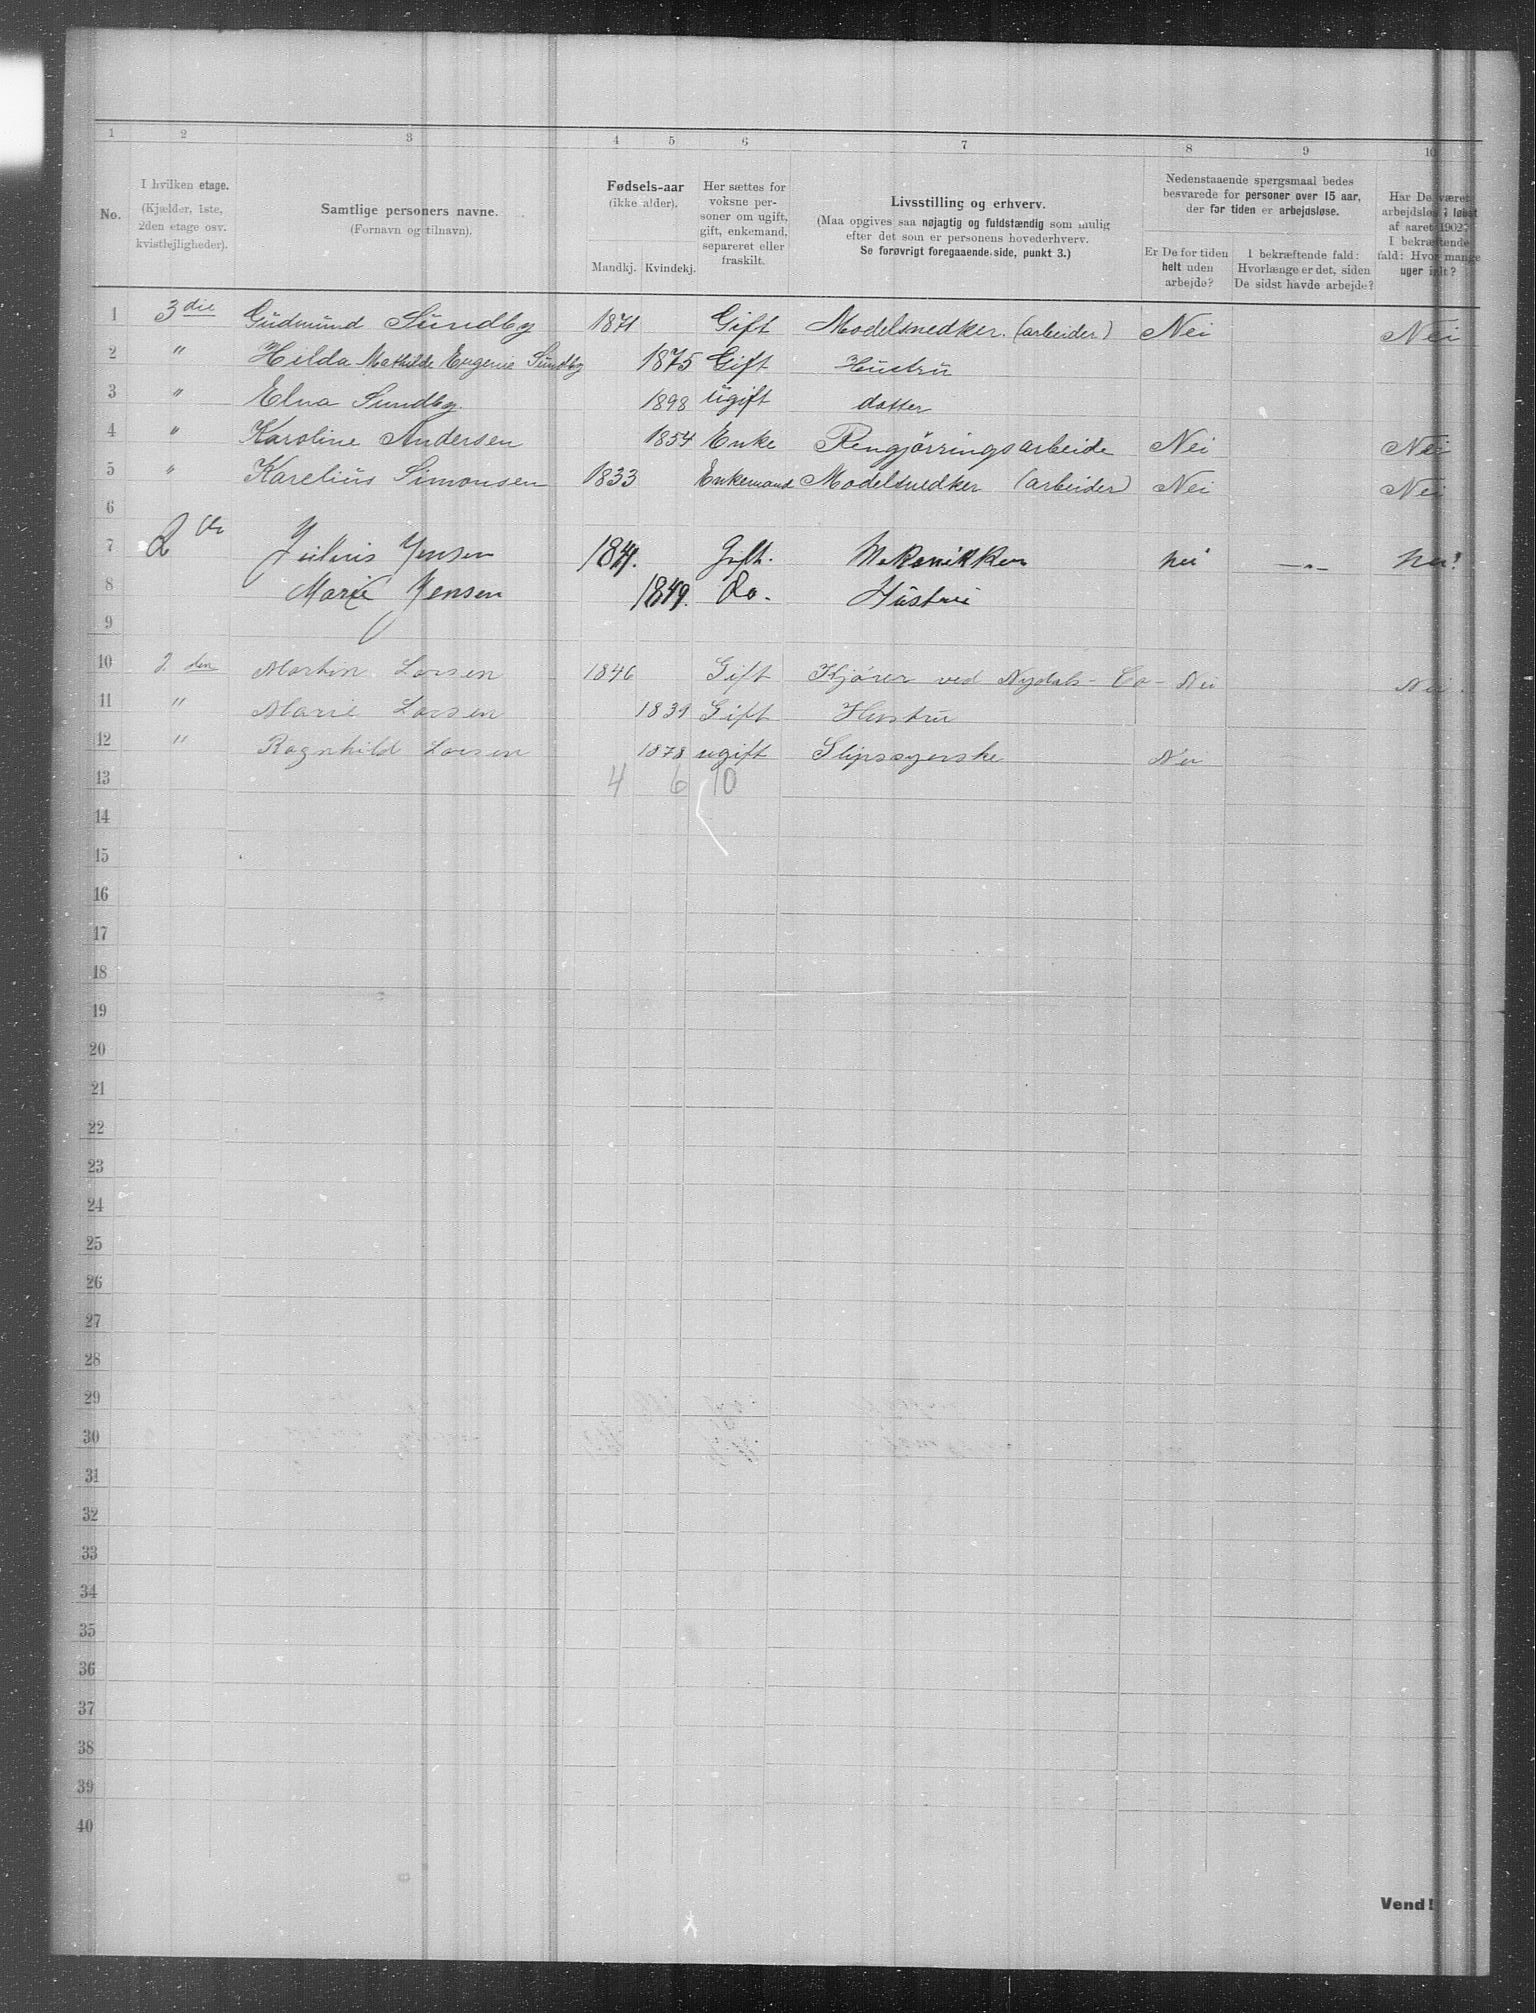 1 2 3 4 5 6 7 8 9 10
No. I hvilken etage. (Kjælder, 1ste, 2den etage osv. kvistlejligheder). Samtlige personers navne. (Fornavn og tilnavn). Fødsels-aar (ikke alder). Mandkj. Kvindekj. Her sættes for voksne personer om ugift, gift, enkemand, separeret eller fraskilt. Livsstilling og erhverv. (Maa opgives saa nøjagtig og fuldstændig som mulig efter det som er personens hovederhverv. Se forøvrigt foregaaende side, punkt 3.) Nedenstaaende spørgsmaal bedes besvarede for personer over 15 aar, der for tiden er arbejdsløse. Er De for tiden helt uden arbejde? I bekræftende fald: Hvorlænge er det, siden De sidst havde arbejde? Har De været arbejdsløs i løbet af aaret 1902? I bekræftende fald: Hvor mange uger ialt?
1 3die Gudmund Sundby 1871 Gift Modelsnedker. (arbeider) Nei Nei
2 " Hilda Mathilde Eugenie Sundby 1875 Gift Hustru
3 " Elna Sundby. 1898 ugift datter
4 " Karoline Andersen 1854 Enke Rengjørringsarbeide Nei Nei
5 " Karelius Simonsen 1833 Enkemand Modelsnedker (arbeider) Nei Nei
6
7 2 Julius Jensen Gift. Mekanikker nei —"— nei!
8 Marie Jensen 1849. Do. Hustru
9
10 2 den Martin Larsen 1846 Gift Kjører ved Nydals- Co - Nei Nei.
11 " Marie Larsen 1839 Gift Hustru
12 " Ragnhild Larsen 1878 ugift Slipssyerske Nei
13 4 6 10
14
15
16
17
18
19
20
21
22
23
24
25
26
27
28
29
30
31
32
33
34
35
36
37
38
39
40
Vend!